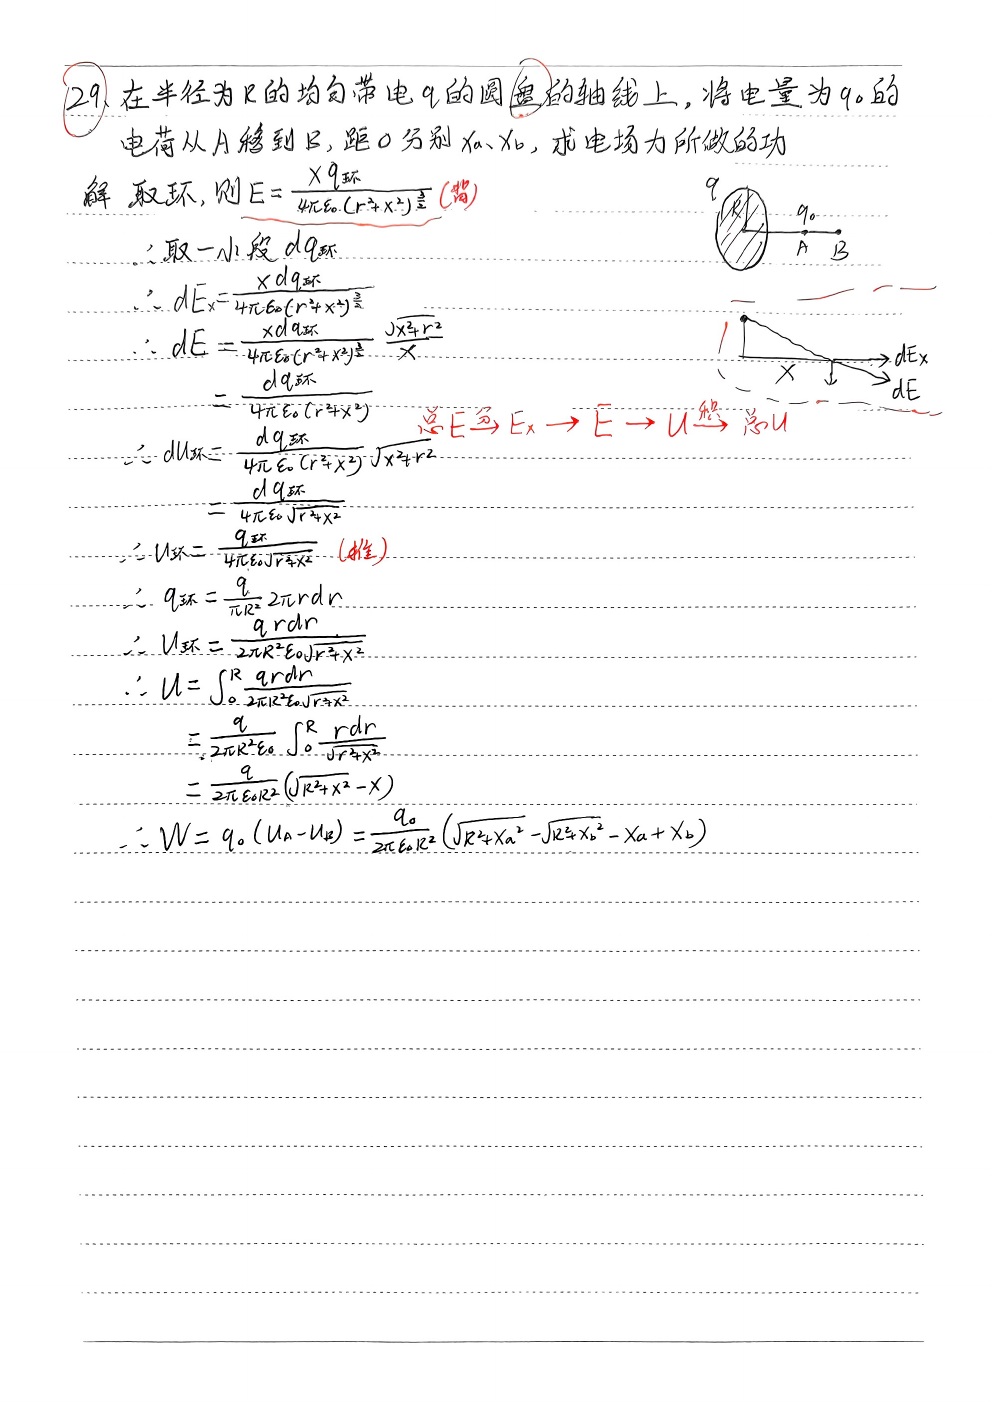 29、在半径为R的均匀带电q的圆盘的轴线上，将电量为q₀的
电荷从A移到B，距O分别Xa、Xb，求电场力所做的功
解 取环，则E = xq环/4πε₀(r²+x²)^(3/2) (背)
∴取一小段dq环
∴ dEx = xdq环/4πε₀(r²+x²)^(3/2)
∴ dE = xdq环/4πε₀(r²+x²)^(3/2) √(x²+r²)/x
= dq环/4πε₀(r²+x²)
总E 分→ Ex → E → U 积→ 总U
∴ dU环 = dq环/4πε₀(r²+x²) √(x²+r²)
= dq环/4πε₀√(r²+x²)
∴ U环 = q环/4πε₀√(r²+x²) (推)
∴ q环 = q/πR² 2πrdr
∴ U环 = qrdr/2πR²ε₀√(r²+x²)
∴ U = ∫₀ᴿ qrdr/2πR²ε₀√(r²+x²)
= q/2πR²ε₀ ∫₀ᴿ rdr/√(r²+x²)
= q/2πε₀R² (√(R²+x²) - x)
∴ W = q₀(UA - UB) = q₀/2πε₀R² (√(R²+Xa²) - √(R²+Xb²) - Xa + Xb)
q
R
q₀
A
B
X
dEx
dE